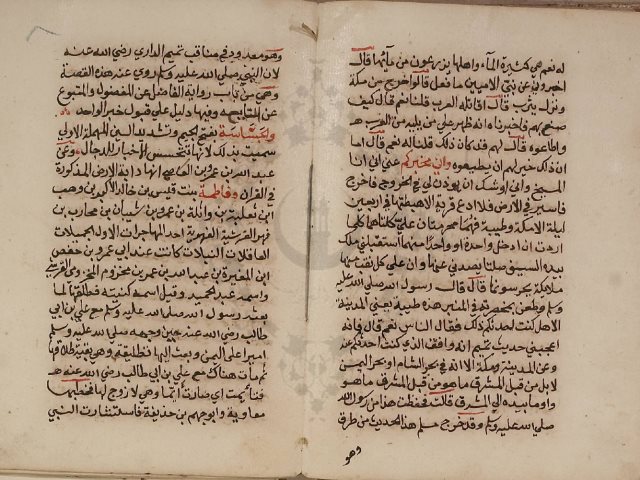 له نعم هي كثيرة الماء واهلها يزرعون من مآئها قال
اخبروني عن نبي الاميين ما فعل قالوا خرج من مكة
ونزل يثرب قال اقاتله العرب قلنا نعم قال كيف
صنع بهم فاخبرناه انه ظهر على من يليه من العرب
واطاعوه قال لهم قد كان ذلك قلنا له نعم قال اما
ان ذلك خير لهم ان يطيعوه واني مخبركم عني اني انا
المسيح واني اوشك ان يوذن لي في الخروج فاخرج
فاسير في الارض فلا ادع قرية الا هبطتها في اربعين
ليلة الا مكة وطيبة فهما محرمتان علي كلتاهما كلما
اردت ان ادخل واحدة او واحدا منهما استقبلني ملك
بيده السيف صلتا يصدني عنها وان على كل نقب منها
ملائكة يحرسونها قال قال رسول الله صلى الله عليه
وسلم وطعن بمخصرته في المنبر هذه طيبة يعني المدينة
الا هل كنت احدثكم ذلك فقال الناس نعم قال فانه
اعجبني حديث تميم انه وافق الذي كنت احدثكم عنه
وعن المدينة ومكة الا انه في بحر الشام او بحر اليمن
لا بل من قبل المشرق ما هو من قبل المشرق ما هو
واوما بيده الي المشرق قالت فحفظت هذا من رسول الله
صلي الله عليه وسلم وقد خرج مسلم هذا الحديث من طرق
وهو
وهو معدود في مناقب تميم الداري رضي الله عنه
لان النبي صلى الله عليه وسلم روي عنه هذه القصة
وهي من باب رواية الفاضل عن المفضول والمتبوع
عن التابع وفيها دليل على قبول خبر الواحد
والجساسة بفتح الجيم وتشديد السين المهملة الاولي
سميت بذلك لانها تتجسس الاخبار للدجال وعن
عبد الله بن عمرو بن العاصي انها دابة الارض المذكورة
في القران وفاطمة بنت قيس بن خالد الاكبر بن وهب
ابن ثعلبة بن وائلة بن عمرو بن شيبان بن محارب بن
فهر القرشية الفهرية احد المهاجرات الاول الجميلات
العاقلات النبيلات كانت عند ابي عمرو بن حفص
ابن المغيرة بن عبد الله بن عمر بن مخزوم المخزومي القرشي
واسمه عبد الحميد وقيل اسمه كنيته فطلقها لما
بعثه رسول الله صلى الله عليه وسلم مع علي بن ابي
طالب رضي الله عنه حين وجهه صلى الله عليه وسلم
اميرا على اليمن وبعث اليها تطليقة وهي بقية طلاقها
ثم مات هناك مع علي بن ابي طالب رضي الله عنه
فتأيمت اي صارت أيما وهي لا زوج لها فخطبها
معاوية وابو جهم بن حذيفة فاستشارت النبي